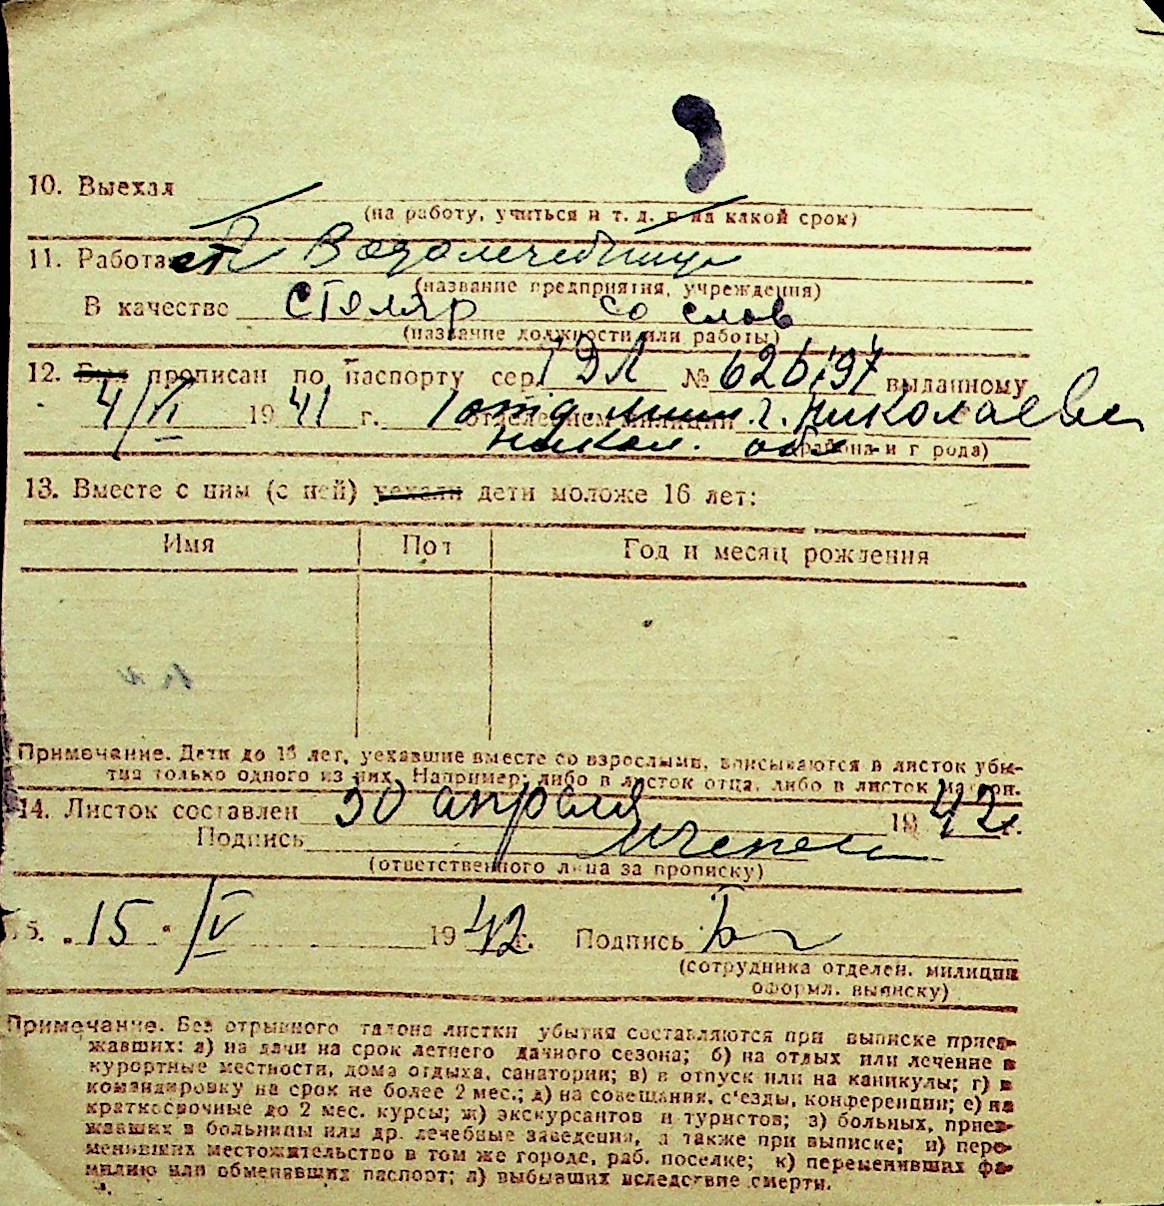 10. Выехал
(на работу, учиться и т. д. и на какой срок)
11. Работа Водолечебница
(название предприятия, учреждения)
В качестве столяр со слов
(название должности или работы)
12. Был прописан по паспорту сер. I ДЛ № 626197 выданному
4/VI 1941 г. 1 отделением милиции г. Николаева
никол. обл. (района и города)
13. Вместе с ним (с ней) уехали дети моложе 16 лет:
Имя Пол Год и месяц рождения
Примечание. Дети до 16 лет, уехавшие вместе со взрослыми, вписываются в листок убы-
тия только одного из них. Например: либо в листок отца, либо в листок матери.
14. Листок составлен 30 апреля 1942 г.
Подпись
(ответственного лица за прописку)
15. „15“ /V 1942 г. Подпись
(сотрудника отделен. милиции
оформл. выписку)
Примечание. Без отрывного талона листки убытия составляются при выписке приез-
жавших: а) на дачи на срок летнего дачного сезона; б) на отдых или лечение в
курортные местности, дома отдыха, санатории; в) в отпуск или на каникулы; г) в
командировку на срок не более 2 мес.; д) на совещания, с'езды, конференции; е) на
краткосрочные до 2 мес. курсы; ж) экскурсантов и туристов; з) больных, приез-
жавших в больницы или др. лечебные заведения, а также при выписке; и) пере-
менивших местожительство в том же городе, раб. поселке; к) переменивших фа-
милию или обменявших паспорт; л) выбывших вследствие смерти.